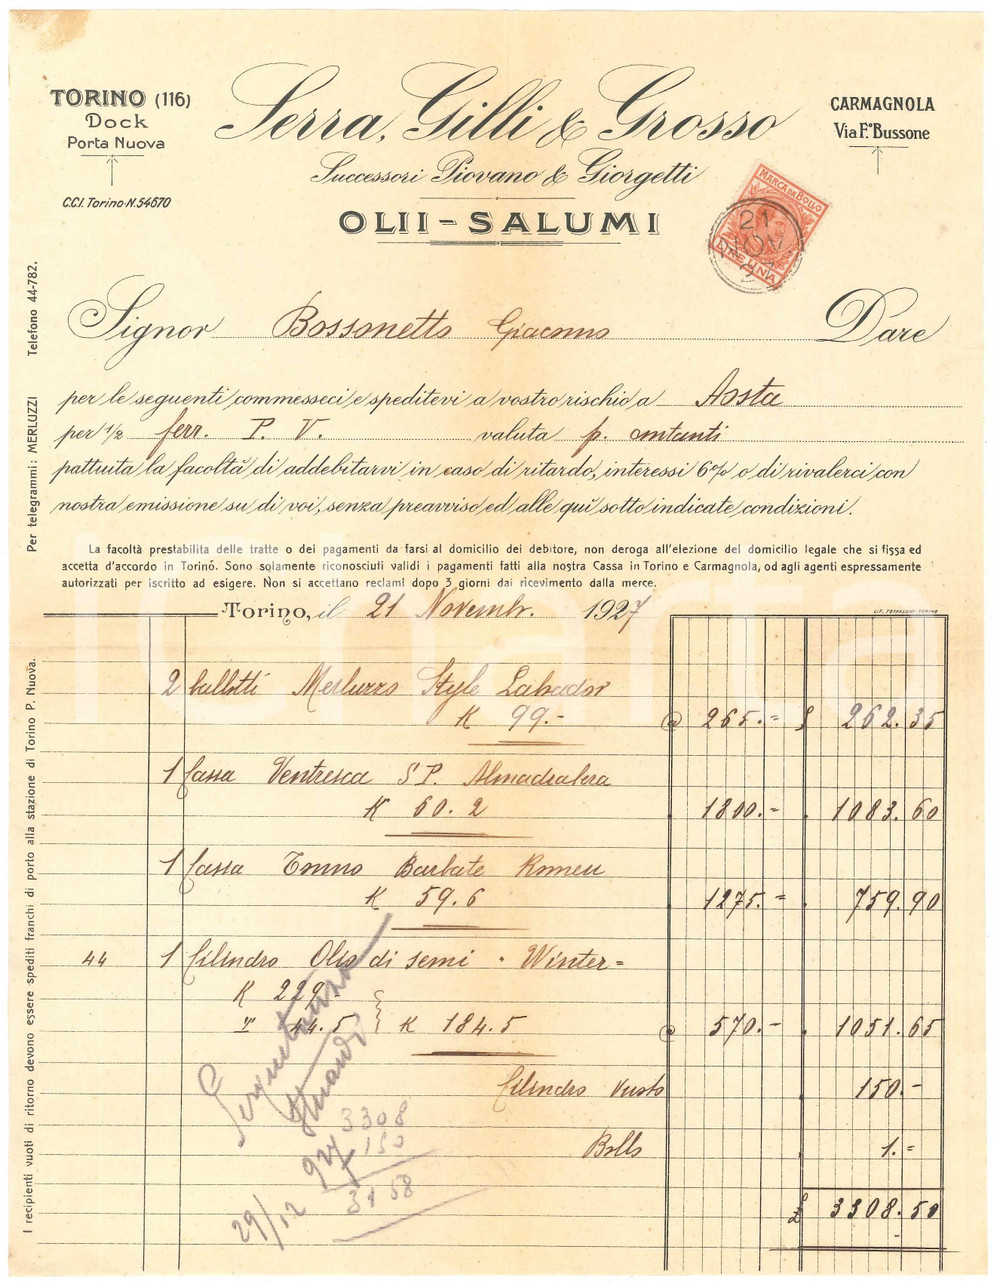 TORINO (116)
Dock
Porta Nuova
C.C.I. Torino-N. 54670
Serra, Gilli & Grosso
Successori Piovano & Giorgetti
OLII - SALUMI
CARMAGNOLA
Via F.º Bussone
MARCA DA BOLLO
LIRE UNA
21 NOV 27
Signor Bossonetto Giacomo Dare
per le seguenti commesseci e speditevi a vostro rischio a Aosta
per 1/2 ferr. P. V. valuta p. contanti
pattuita la facoltà di addebitarvi in caso di ritardo, interessi 6% o di rivalerci con
nostra emissione su di voi, senza preavviso ed alle quì sotto indicate condizioni.
La facoltà prestabilita delle tratte o dei pagamenti da farsi al domicilio dei debitore, non deroga all'elezione del domicilio legale che si fissa ed
accetta d'accordo in Torino. Sono solamente riconosciuti validi i pagamenti fatti alla nostra Cassa in Torino e Carmagnola, od agli agenti espressamente
autorizzati per iscritto ad esigere. Non si accettano reclami dopo 3 giorni dai ricevimento dalla merce.
Torino, il 21 Novembr. 1927
Per telegrammi: MERLUZZI Telefono 44-782.
I recipienti vuoti di ritorno devono essere spediti franchi di porto alla stazione di Torino P. Nuova.
2 ballotti Merluzzo Style Labador
K 99.- @ 265.= £ 262.35
1 Cassa Ventresca S P. Almadrabera
K 60.2 1800.= 1083.60
1 Cassa Tonno Barbate Romeu
K 59.6 1275.= 759.90
44 1 Cilindro Olio di semi · Winter=
K 229
T 44.5 K 184.5 @ 570.- 1051.65
Cilindro vuoto 150.-
Bollo 1.=
£ 3308.50
3308
150
3158
29/12 927
lcharta